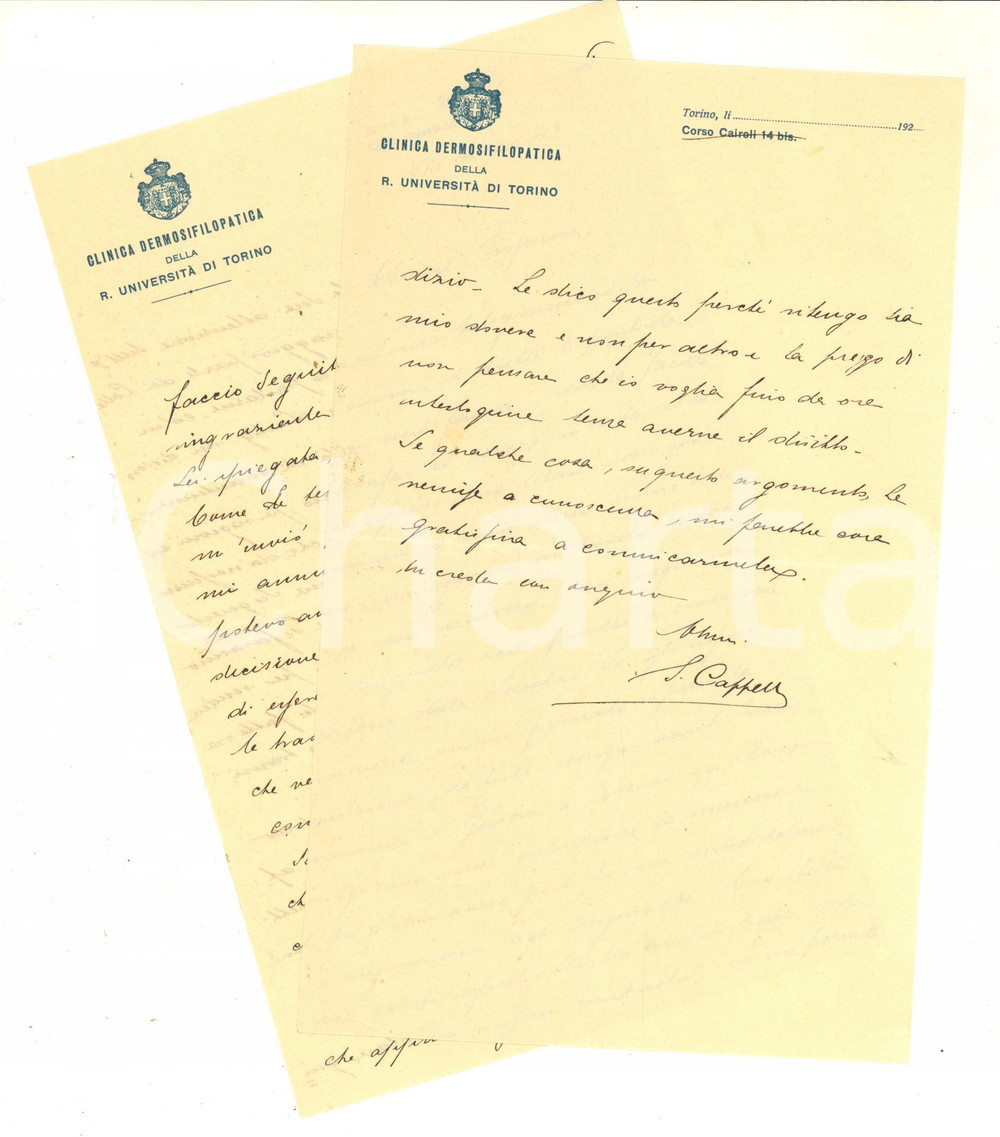 CLINICA DERMOSIFILOPATICA
DELLA
R. UNIVERSITÀ DI TORINO
faccio seguit
ringraziente
Lei spiegata
Come Le tes
m'inviò
mi annu
potevo an
decisione
di esser
le trat
che ve
con
Se
ch
e
che appro
CLINICA DERMOSIFILOPATICA
DELLA
R. UNIVERSITÀ DI TORINO
Torino, li ........ 192
Corso Cairoli 14 bis.
dizio - Le dico questo perché ritengo sia
mio dovere e non per altro e la prego di
non pensare che io voglia fino da ora
interloquire senza averne il diritto -
Se qualche cosa, su questo argomento, Le
venisse a conoscenza, mi farebbe cosa
gratissima a comunicarmela.
Mi creda con ossequio
S. Cappelli
Charta